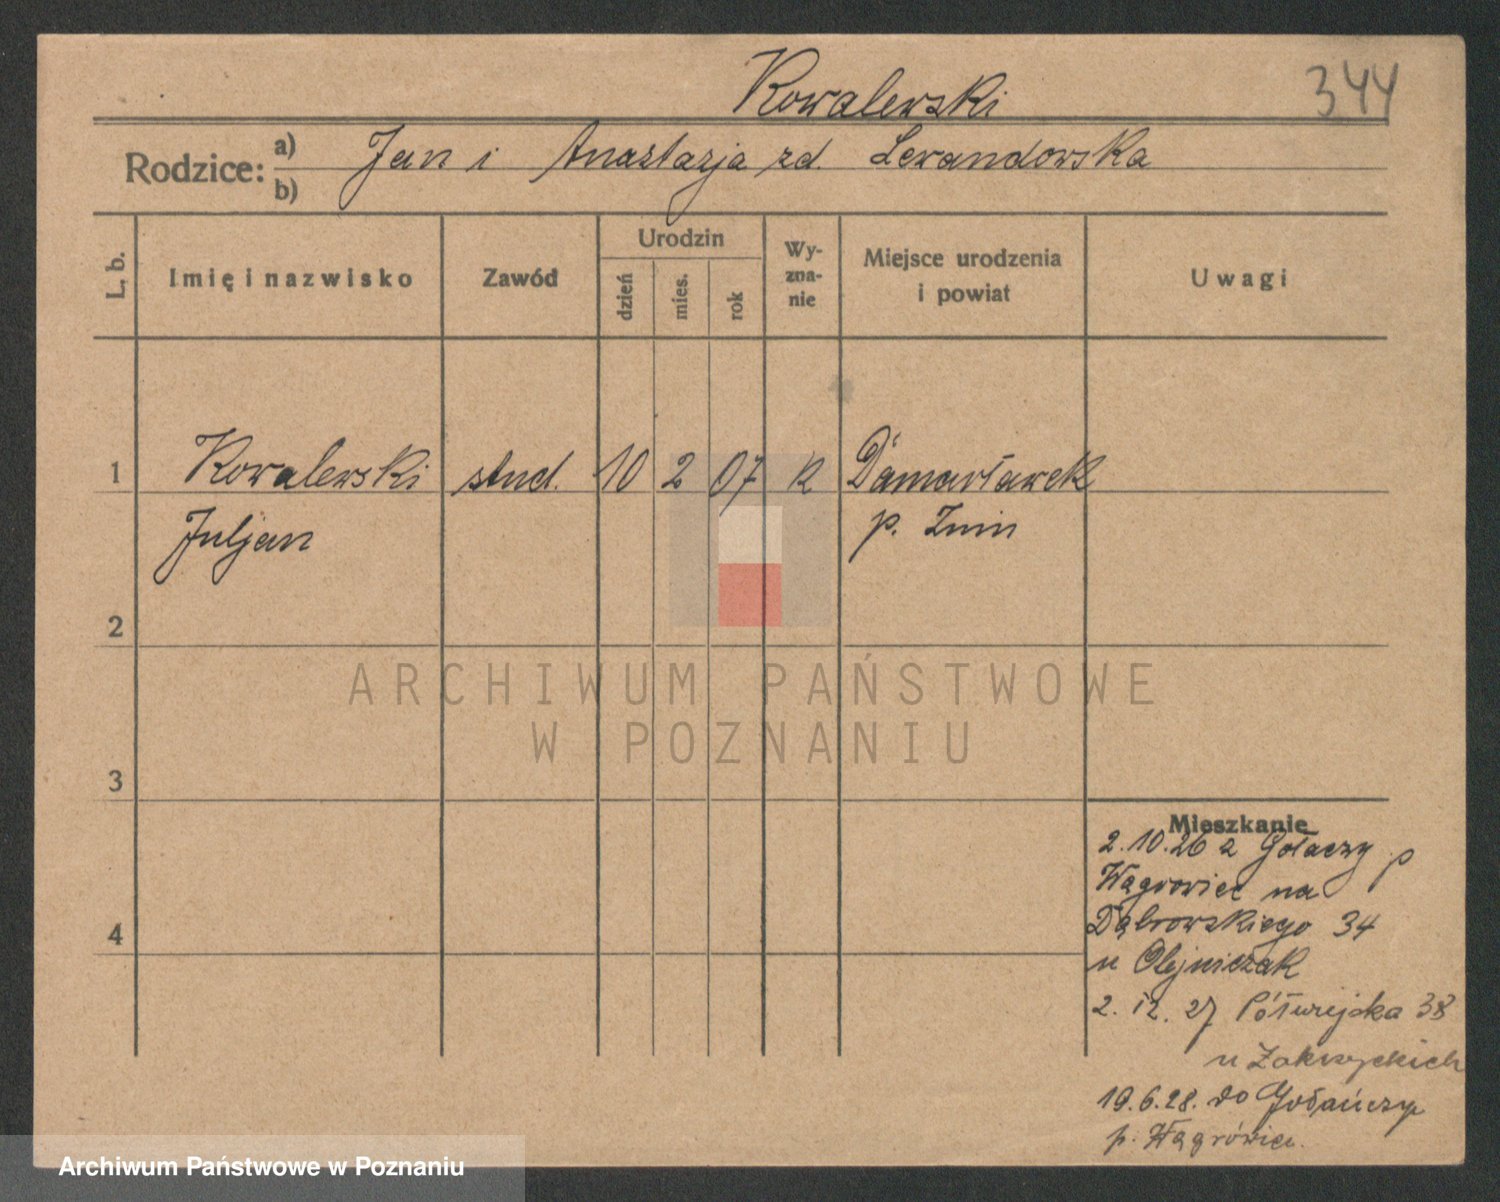 Kowalewski
344
Rodzice: a) b) Jan i Anastazja zd. Lewandowska
L. b.
Imię i nazwisko
Zawód
Urodzin
dzień
mies.
rok
Wy-
zna-
nie
Miejsce urodzenia
i powiat
Uwagi
1 Kowalewski stud. 10 2 07 k Damasławek
Juljan p. Żnin
2
3
4
Mieszkanie
2.10.26 z Gołaczy p
Wągrowiec na
Dąbrowskiego 34
u Olejniczak
2. 12. 27 Półwiejska 38
u Zakrzyckich
19.6.28. do Gołańczy
p. Wągrówiec.
ARCHIWUM PAŃSTWOWE
W POZNANIU
Archiwum Państwowe w Poznaniu